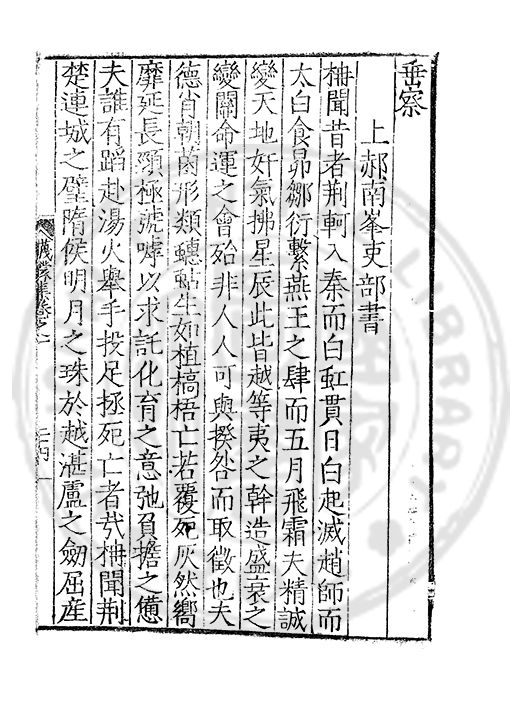 垂察
上郝南峯吏部書
柟聞昔者荆軻入秦而白虹貫日白起滅趙師而
太白食昴鄒衍繫燕王之肆而五月飛霜夫精誠
變天地奸氣拂星辰此皆越等夷之幹造盛衰之
變關命運之會殆非人人可與揆咎而取徵也夫
德肖朝菌形類蟪蛄生如植槁梧亡若覆死灰然嚮
靡延長頸極號嘑以求託化育之意弛負擔之憊
夫誰有蹈赴湯火舉手投足拯死亡者㢤柟聞荆
楚連城之璧隋侯明月之珠於越湛盧之劒屈産
蠛蠓集卷之二
二十四